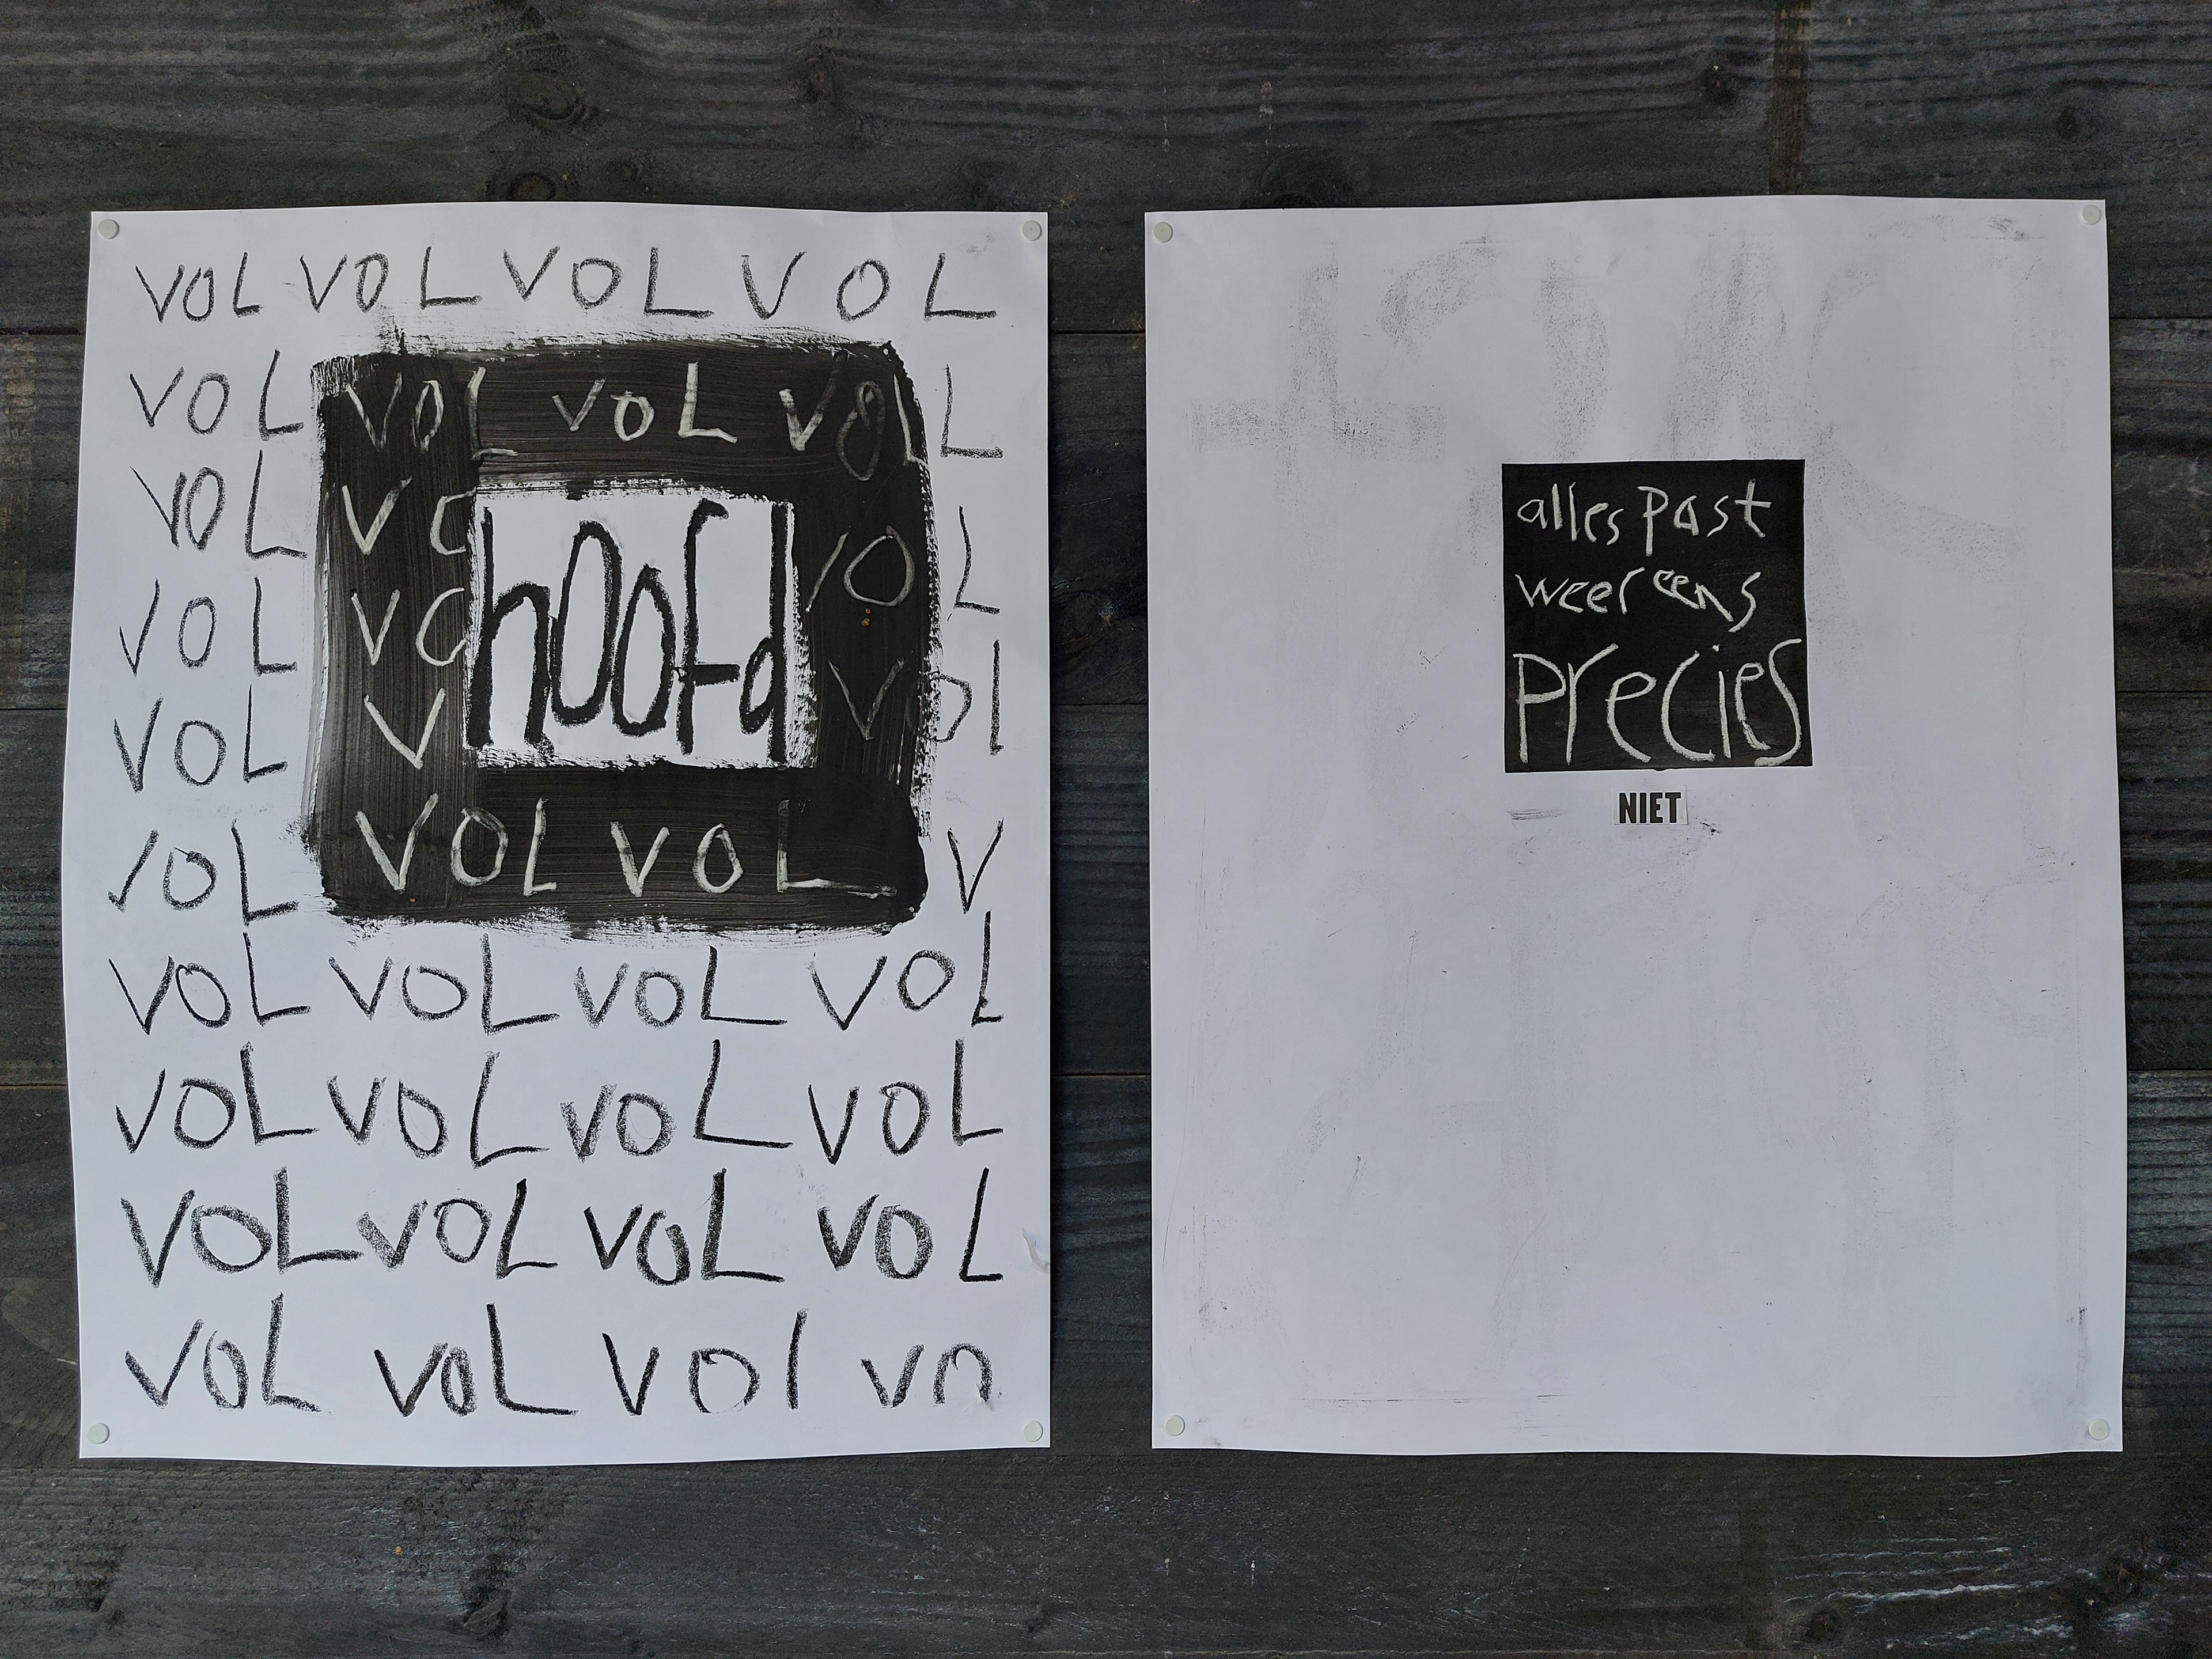 VOL VOL VOL VOL
VOL VOL VOL VOLL
VOL VO OL
VOL VO hoofd VOL
VOL V Vol
VOL VOL VOL V
VOL VOL VOL VOL
VOL VOL VOL VOL
VOL VOL VOL VOL
VOL VOL VOl VO
alles past
weer eens
precies
NIET